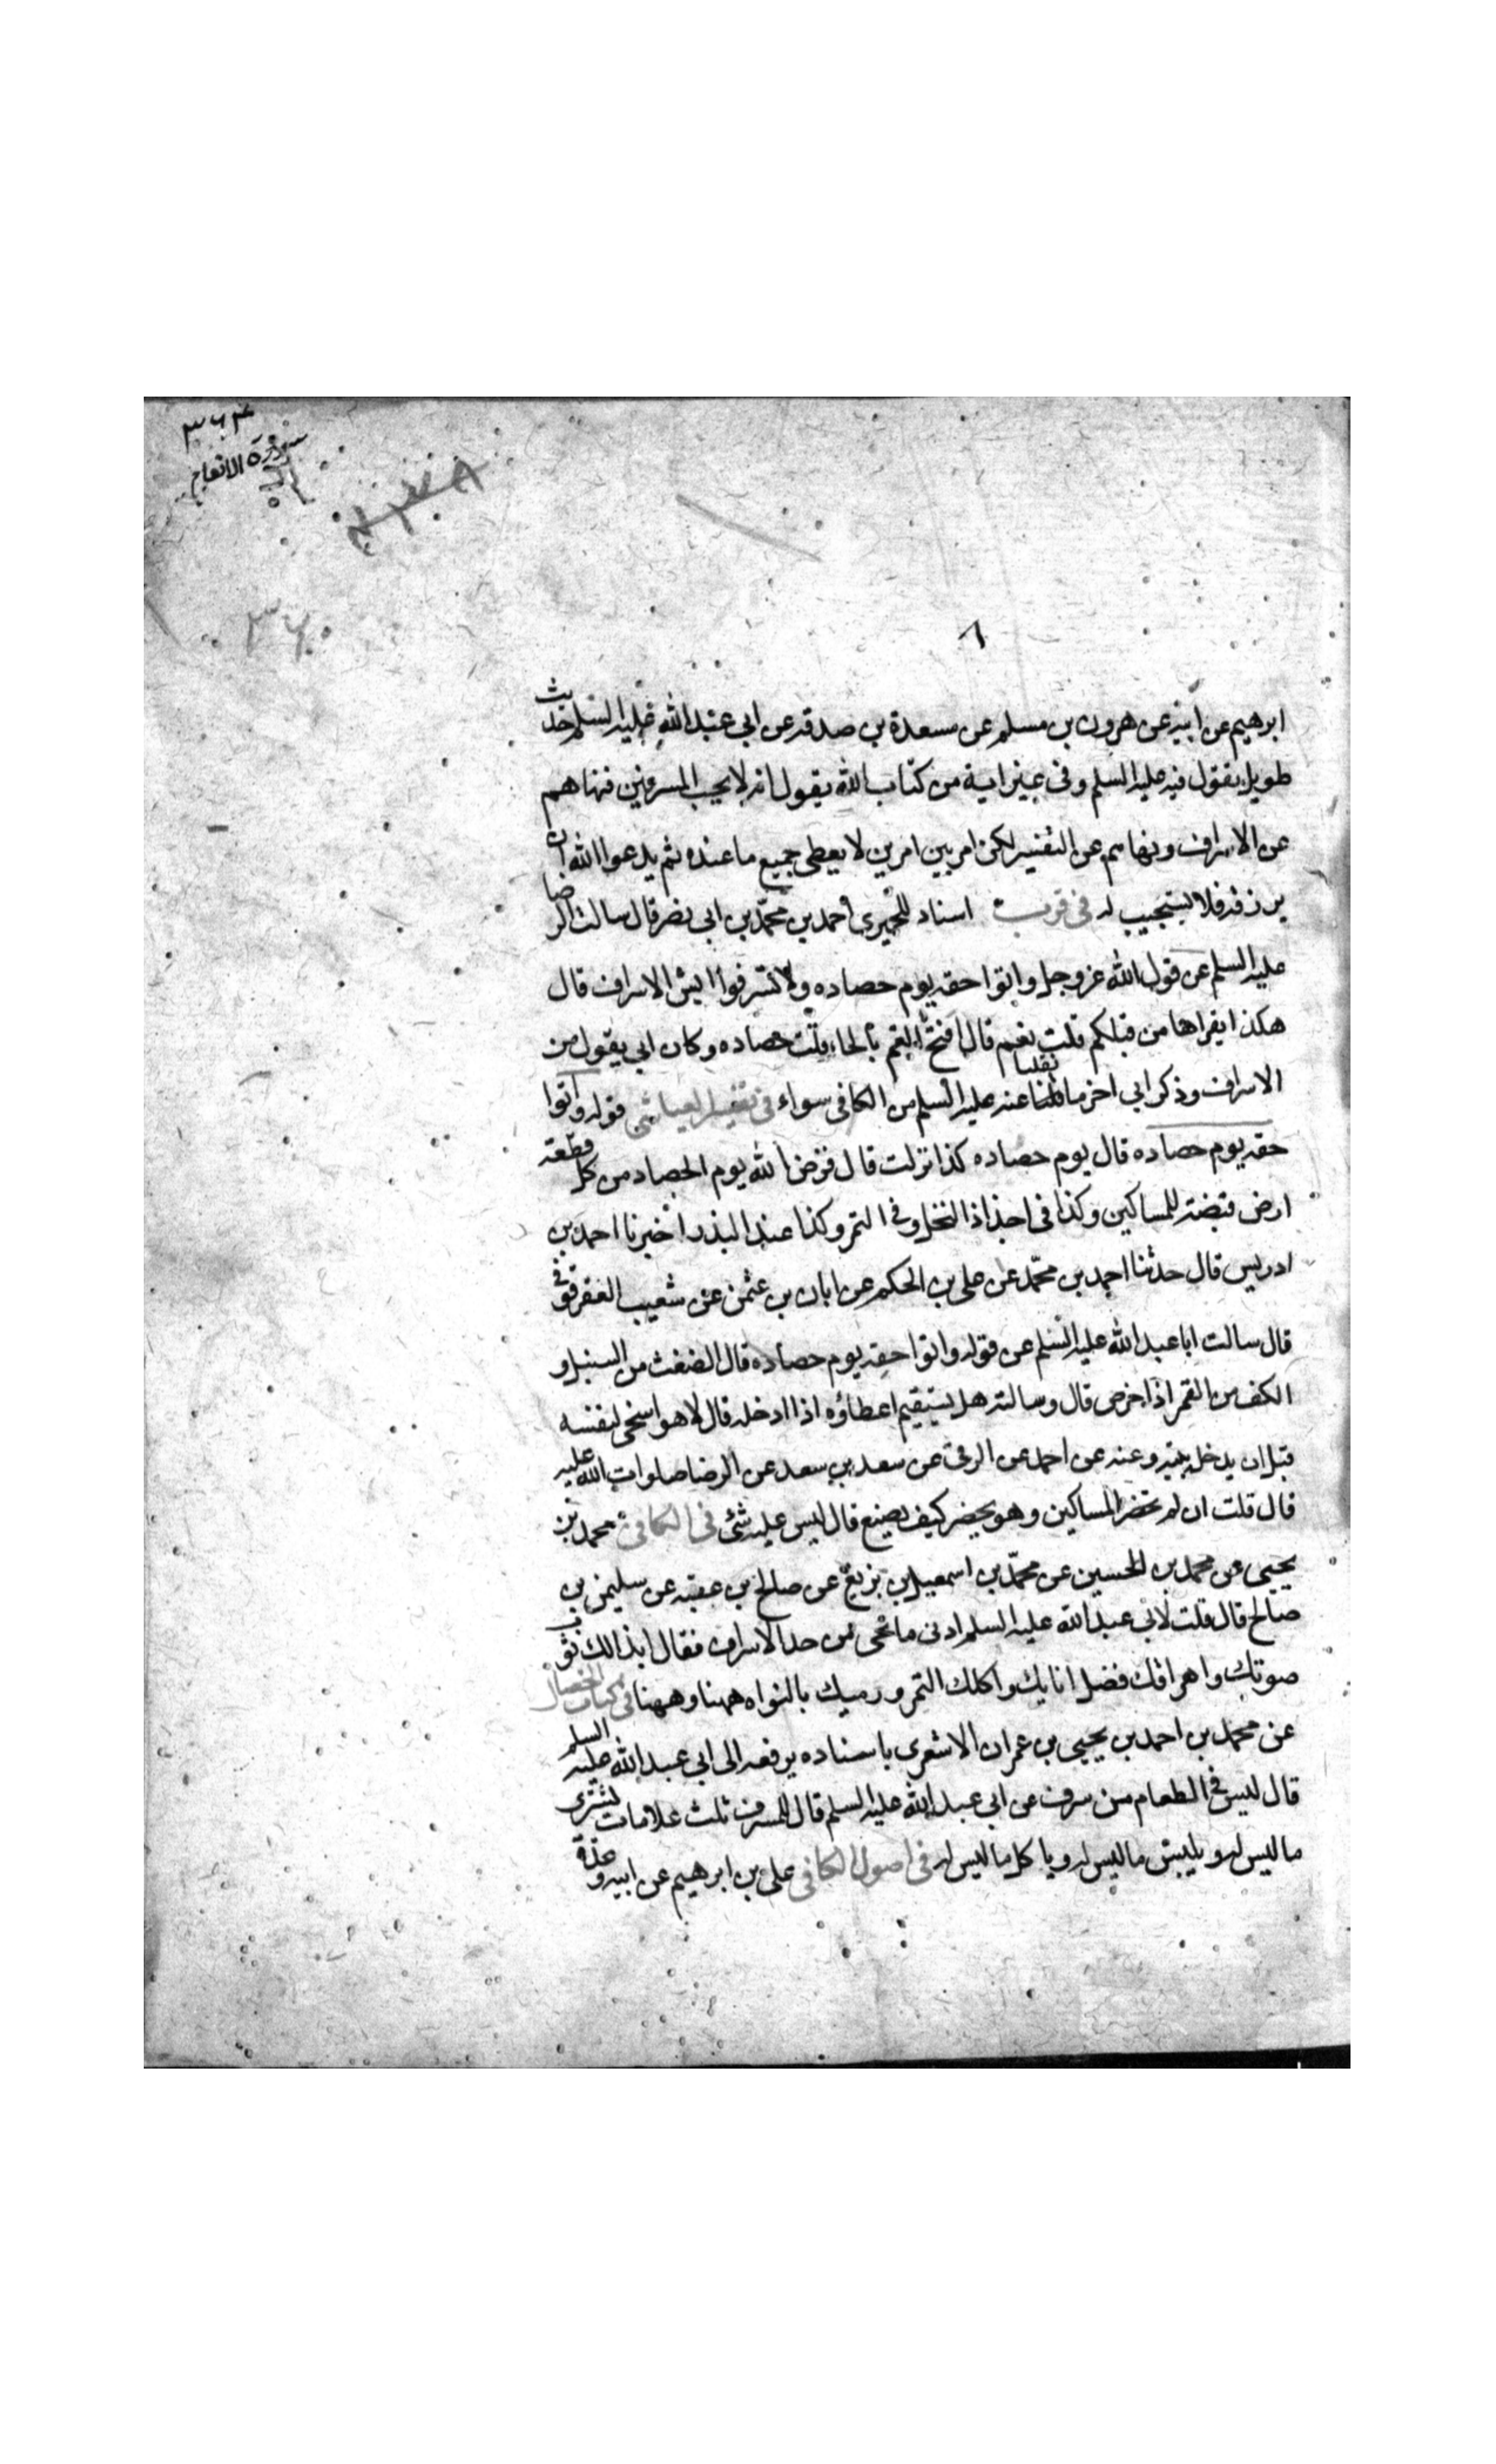 ٣٦٤
سورة الانعام
٣٦٠
ابرهيم عن ابيه عن هرون بن مسلم عن مسعدة بن صدقه عن ابي عبد الله عليه السلم حديث
طويل يقول فيه عليه السلم وفى غير اية من كتاب الله يقول انه لا يحب المسرفين فنهاهم
عن الاسراف ونهاهم عن التقتير لكن امر بين امرين لا يعطى جميع ما عنده ثم يدعوا الله ان
يرزقه فلا يستجيب له فى قرب اسناد للحميرى احمد بن محمّد بن ابى نصر قال سالت الرضا
عليه السلم عن قول الله عزوجل واتوا حقه يوم حصاده ولا تسرفوا ايش الاسراف قال
هكذا يقراها من قبلكم قلت نعم قال افتح الفم بالحاء قلت حصاده وكان ابى يقول من
الاسراف وذكر ابى اخر ما نقلنا عنه عليه السلم من الكافى سواء فى تفسير العياشى قوله واتوا
حقه يوم حصاده قال يوم حصاده كذا نزلت قال فرض الله يوم الحصاد من كل قطعة
ارض قبضة للمساكين وكذا فى اجذاذ النخل وفى التمر وكذا عند البذر اخبرنا احمد بن
ادريس قال حدثنا احمد بن محمّد عن على بن الحكم عن ابان بن عثمن عن شعيب العقرقوفى
قال سالت ابا عبد الله عليه السلم عن قوله واتوا حقه يوم حصاده قال الضغث من السنبل و
الكف من التمر اذا خرص قال وسالته هل يستقيم اعطاؤه اذا ادخله قال لا هو اسخى لنفسه
قبل ان يدخل بيته وعنه عن احمد عن البرقى عن سعد بن سعد عن الرضا صلوات الله عليه
قال قلت ان لم تحضر المساكين وهو يحضر كيف يصنع قال ليس عليه شئ فى الكافى محمد بن
يحيى عن محمد بن الحسين عن محمّد بن اسمعيل بن بزيع عن صالح بن عقبه عن سليمن بن
صالح قال قلت لابى عبد الله عليه السلم ادنى ما يجى من حد الاسراف فقال ابذالك ثوب
صوتك واهراقك فضل انايك واكلك التمر ورميك بالنواه ههنا وههنا فى كتاب الخصال
عن محمد بن احمد بن يحيى بن عمران الاشعرى باسناده يرفعه الى ابى عبد الله عليه السلم
قال ليس فى الطعام من سرف عن ابى عبد الله عليه السلم قال للمسرف ثلث علامات يشترى
ما ليس له ويلبس ما ليس له وياكل ما ليس له فى اصول الكافى على بن ابرهيم عن ابيه وعدة